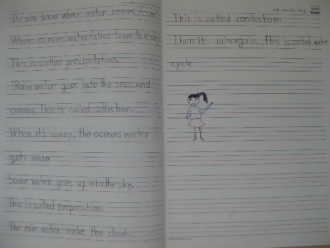 Do you know where water comes from?
When it rains water falls from the sky.
This is called precipitation.
Rain water goes into the seas and
oceans. This is called collection.
When it's sunny, the oceans water
gets warm
Some water goes up into the sky,
This is called evaporation.
The rain water make the cloud.
This is called condensation.
Then It rains again. This is called water
cycle.